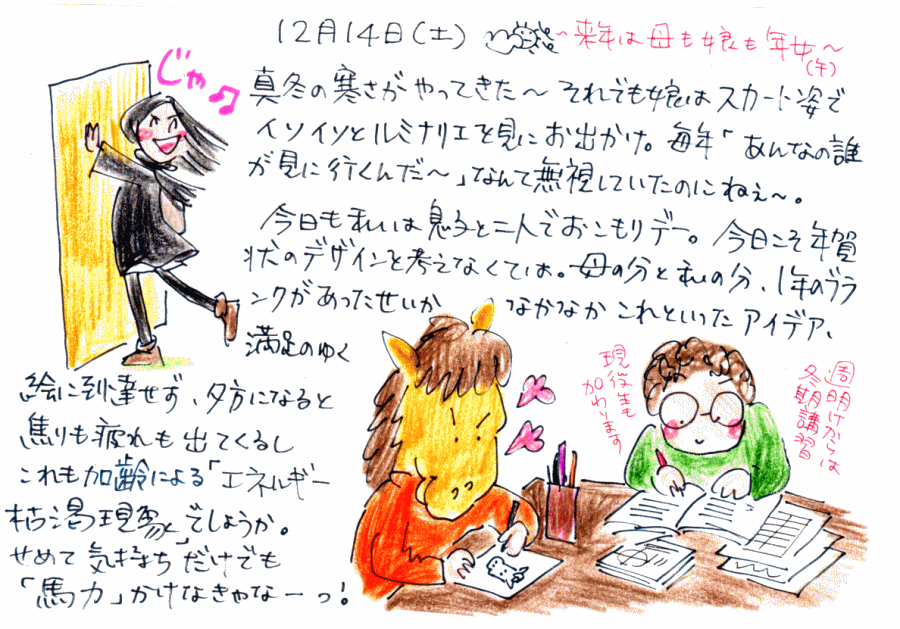 12月14日(土) ~来年は母も娘も年女~
(午)
じゃ♪
真冬の寒さがやってきた~それでも娘はスカート姿で
イソイソとルミナリエを見にお出かけ。毎年「あんなの誰
が見に行くんだ~」なんて無視していたのにねぇ~。
今日も私は息子と二人でおこもりデー。今日こそ年賀
状のデザインを考えなくては。母の分と私の分、1年のブラ
ンクがあったせいか なかなかこれといったアイデア、
満足のゆく
絵に到達せず、夕方になると
焦りも疲れも出てくるし
これも加齢による「エネルギー
枯渇現象」でしょうか。
せめて気持ちだけでも
「馬力」かけなきゃなーっ!
現役生も
加わります
週明けからは
冬期講習